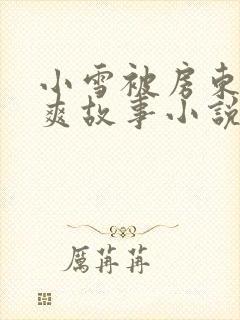 小雪被房东
爽故事小説
厲苒苒